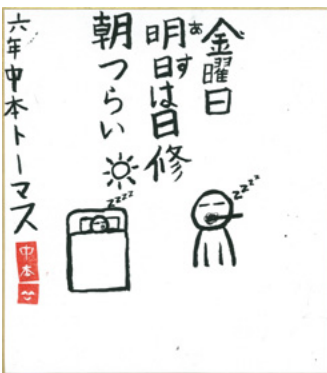 金曜日
明日は日修
あす
朝つらい
zzzz
zzzz
六年中本トーマス
中本